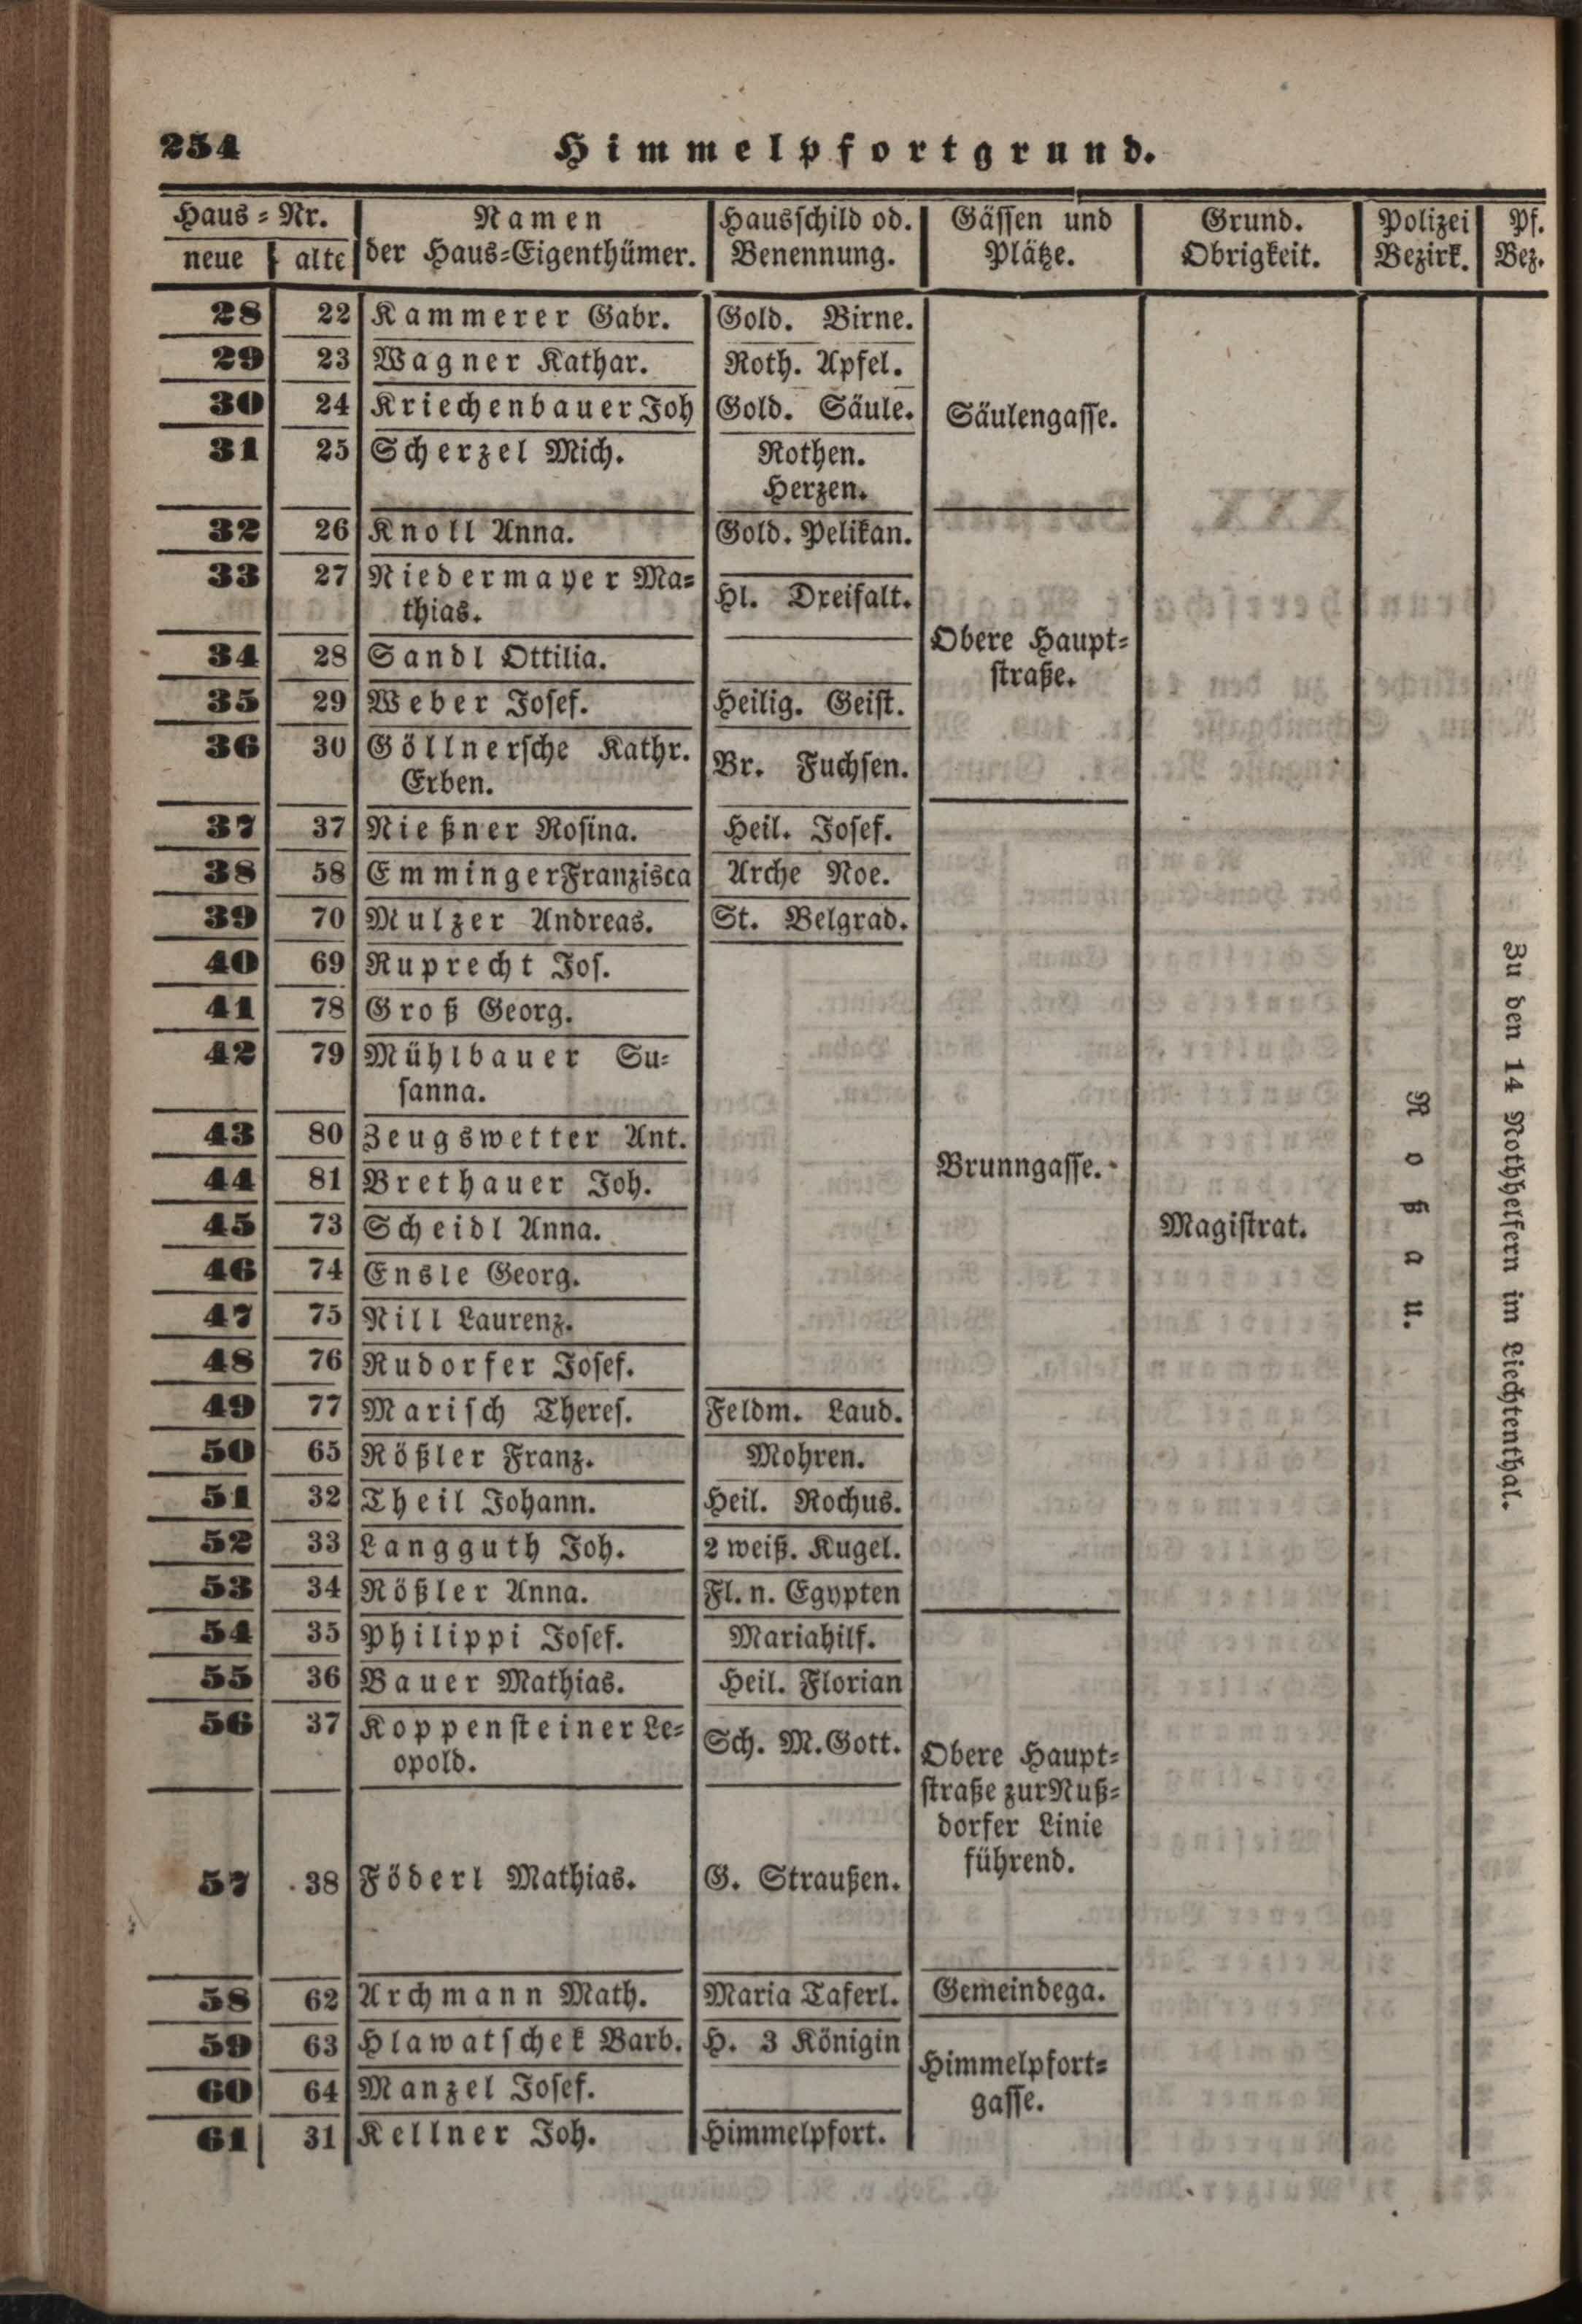 254 Himmelpfortgrund.
Haus-Nr. Namen Hausschild od. Gässen und Grund. Polizei Pf.
neue alte der Haus-Eigenthümer. Benennung. Plätze. Obrigkeit. Bezirk. Bez.
28 22 Kammerer Gabr. Gold. Birne.
29 23 Wagner Kathar. Roth. Apfel.
30 24 Kriechenbauer Joh Gold. Säule. Säulengasse.
31 25 Scherzel Mich. Rothen.
Herzen.
32 26 Knoll Anna. Gold. Pelikan.
33 27 Niedermayer Ma-
thias. Hl. Dreifalt.
Obere Haupt-
34 28 Sandl Ottilia.
straße.
35 29 Weber Josef. Heilig. Geist.
36 30 Göllnersche Kathr. Br. Fuchsen.
Erben.
37 37 Nießner Rosina. Heil. Josef.
38 58 Emminger Franzisca Arche Noe.
39 70 Mulzer Andreas. St. Belgrad.
40 69 Ruprecht Jos.
41 78 Groß Georg.
42 79 Mühlbauer Su-
sanna.
43 80 Zeugswetter Ant.
44 81 Brethauer Joh. Brunngasse.
45 73 Scheidl Anna. Magistrat.
46 74 Ensle Georg.
47 75 Nill Laurenz.
48 76 Rudorfer Josef.
49 77 Marisch Theres. Feldm. Laud.
50 65 Rößler Franz. Mohren.
51 32 Theil Johann. Heil. Rochus.
52 33 Langguth Joh. 2 weiß. Kugel.
53 34 Rößler Anna. Fl. n. Egypten
54 35 Philippi Josef. Mariahilf.
55 36 Bauer Mathias. Heil. Florian
56 37 Koppensteiner Le- Sch. M. Gott.
opold.
Obere Haupt-
straße zur Nuß-
dorfer Linie
führend.
57 38 Föderl Mathias. G. Straußen.
58 62 Archmann Math. Maria Taferl. Gemeindega.
59 63 Hlawatschek Barb. H. 3 Königin
Himmelpfort-
60 64 Manzel Josef.
gasse.
61 31 Kellner Joh. Himmelpfort.
Roßau.
Zu den 14 Nothhelfern im Liechtenthal.